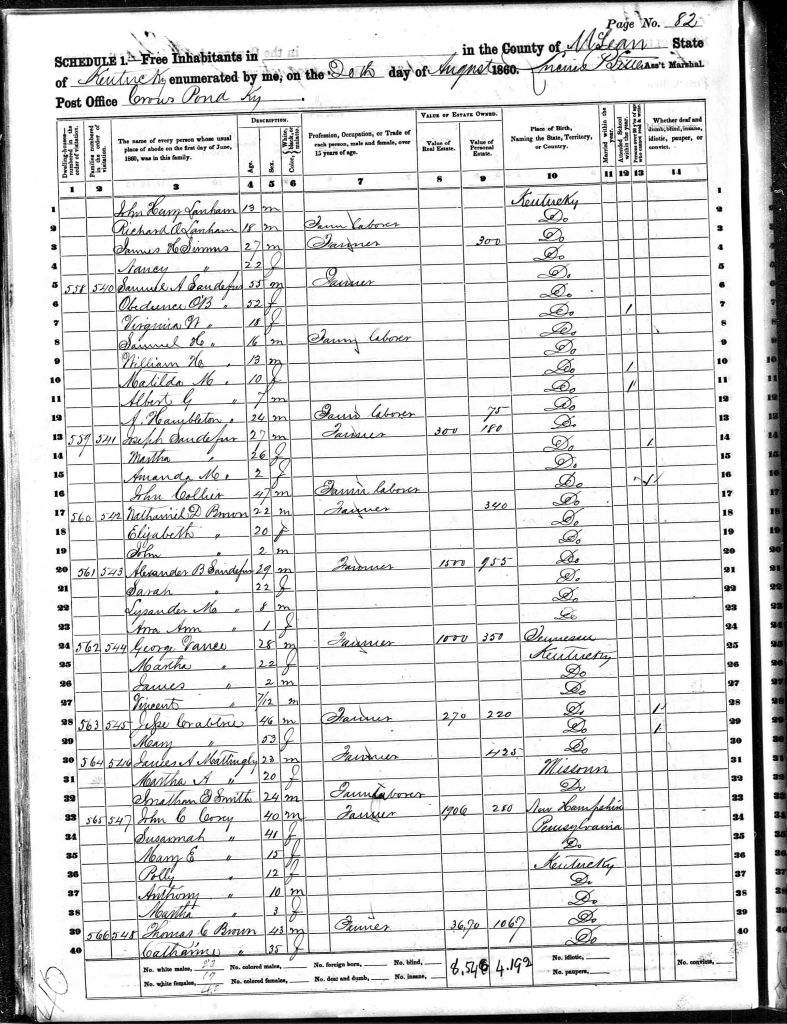 Page No. 82
SCHEDULE 1.—Free Inhabitants in in the County of McLean State
of Kentucky enumerated by me, on the 20th day of August 1860. Ass't Marshal.
Post Office Crows Pond Ky
Dwelling-houses numbered in the order of visitation. Families numbered in the order of visitation. The name of every person whose usual place of abode on the first day of June, 1860, was in this family. DESCRIPTION. Age. Sex. Color, White, black, or mulatto. Profession, Occupation, or Trade of each person, male and female, over 15 years of age. VALUE OF ESTATE OWNED. Value of Real Estate. Value of Personal Estate. Place of Birth, Naming the State, Territory, or Country. Married within the year. Attended School within the year. Persons over 20 y'rs of age who cannot read & write. Whether deaf and dumb, blind, insane, idiotic, pauper, or convict.
1 2 3 4 5 6 7 8 9 10 11 12 13 14
1 John Henry Lanham 13 m Kentucky 1
2 Richard A Lanham 18 m Farm laborer Do 2
3 James H Simms 27 m Farmer 300 Do 3
4 Nancy " 22 f Do 4
5 558 540 Samuel A Sandefur 55 m Farmer Do 5
6 Obedience OB " 52 f Do 6
7 Virginia W " 18 f Do 1 7
8 Samuel H " 16 m Farm laborer Do 8
9 William H " 13 m Do 9
10 Matilda M " 10 f Do 1 10
11 Albert G " 7 m Do 1 11
12 J. Hambleton " 24 m Farm laborer 75 Do 12
13 559 541 Joseph Sandefur 27 m Farmer 300 180 Do 13
14 Martha " 26 f Do 1 14
15 Amanda M " 2 f Do 15
16 John Collier 47 m Farm laborer Do 1 16
17 560 542 Nathaniel D Brown 22 m Farmer 340 Do 17
18 Elizabeth " 20 f Do 18
19 John " 2 m Do 19
20 561 543 Alexander B Sandefur 29 m Farmer 1500 955 Do 20
21 Sarah " 22 f Do 21
22 Lysander M " 8 m Do 22
23 Ann " 1 f Do 23
24 562 544 George Vance 28 m Farmer 1000 350 Tennessee 24
25 Martha " 22 f Kentucky 25
26 James " 2 m Do 26
27 Vincent " 7/12 m Do 27
28 563 545 Jesse Crabtree 46 m Farmer 270 220 Do 1 28
29 Mary " 53 f Do 1 29
30 564 546 James A Mattingly 23 m Farmer 425 Do 30
31 Martha A " 20 f Missouri 31
32 Jonathan E Smith 24 m Farm laborer Do 32
33 565 547 John C Cory 40 m Farmer 1906 280 New Hampshire 33
34 Susannah " 41 f Pennsylvania 34
35 Mary E " 15 f Do 35
36 Polly " 12 f Kentucky 36
37 Anthony " 10 m Do 37
38 Martha " 3 f Do 38
39 566 548 Thomas C Brown 43 m Farmer 3670 1067 Do 39
40 Catharine " 35 f Do 40
No. white males, No. colored males, No. foreign born, No. blind, 8,546 4,192 No. idiotic, No. convicts,
No. white females, No. colored females, No. deaf and dumb, No. insane, No. paupers,
40